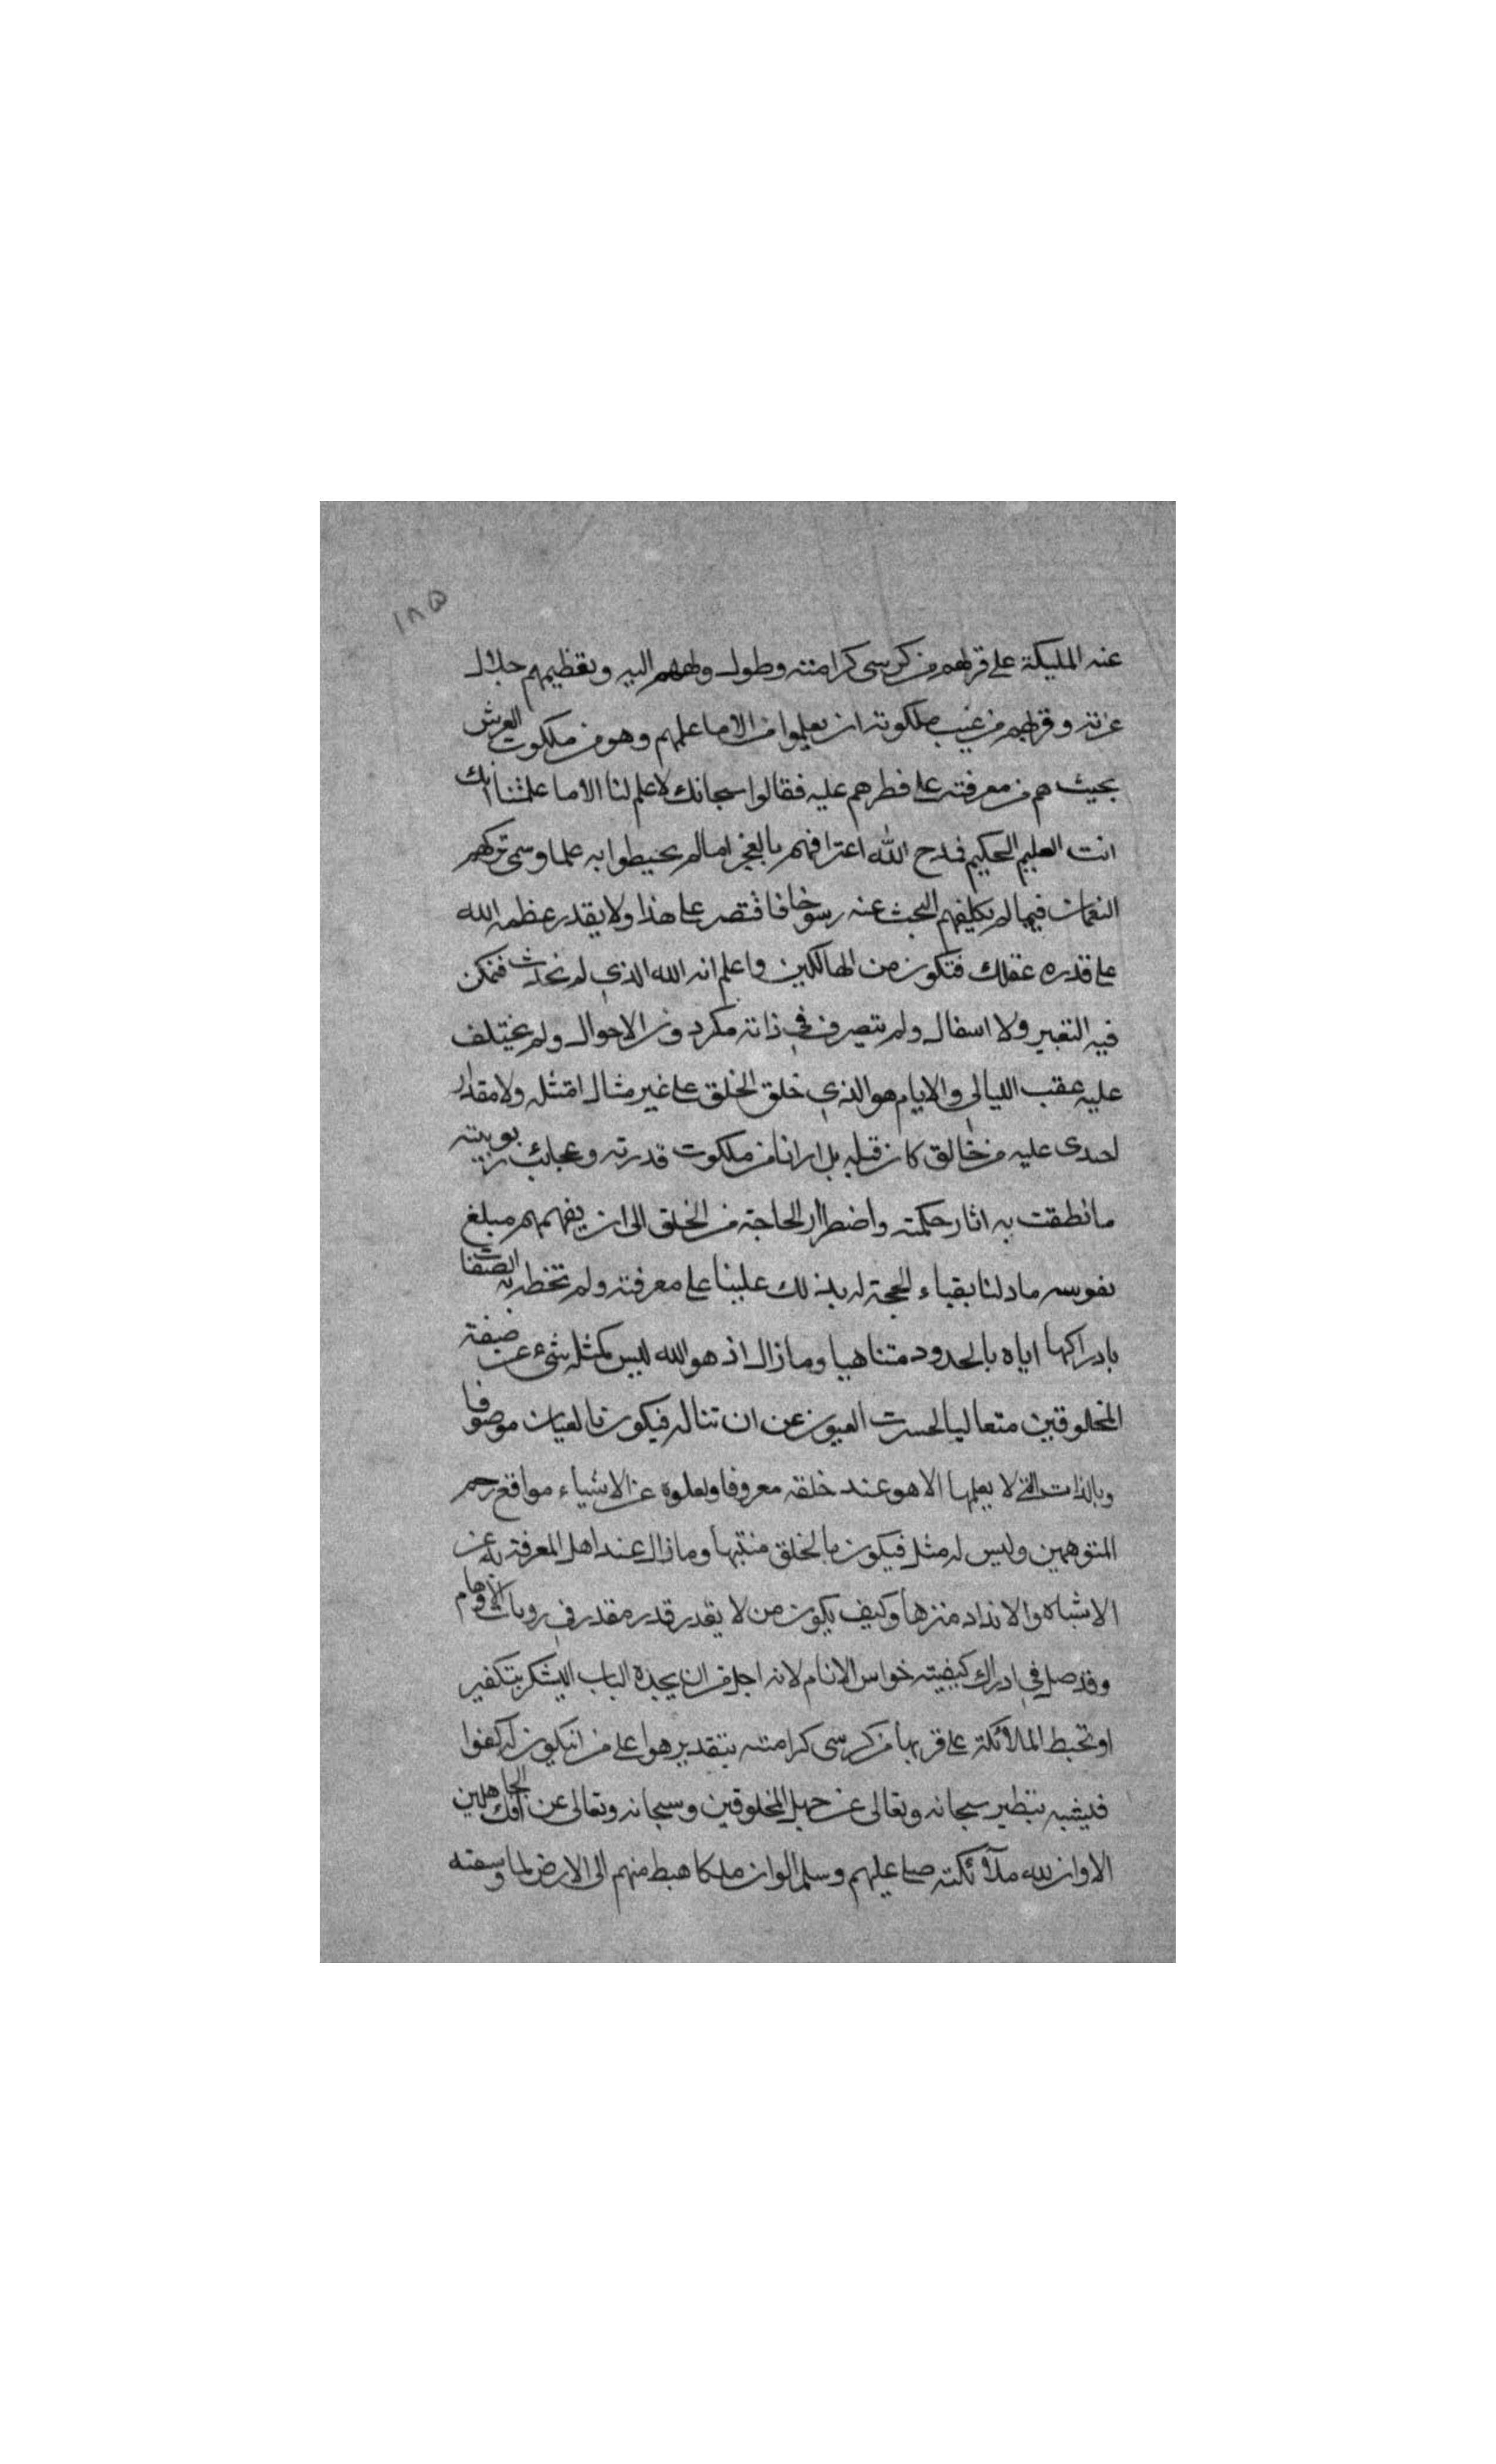 ١٨٥
عنه المليكة على قربهم من كرسى كرامته وطول ولههم اليه وتعظيمهم جلال
عزته وقربهم من غيب ملكوته ان يعلموا من الاما علمهم وهو من ملكوت العرش
بحيث هم من معرفته على فطرهم عليه فقالوا سبحانك لا علم لنا الاما علمتنا انك
انت العليم الحكيم فمدح الله اعترافهم بالعجز امالم يحيطوا به علما وسمى تركهم
التعمق فيما لم يكلفهم البحث عنه رسوخا فاقتصر على هذا ولا يقدر عظمه الله
على قدره عقلك فتكون من الهالكين واعلم انه الله الذي لم يحدث فتمكن
فيه التغير ولا اسفال ولم يتصرف في ذاته مكرد ون الاحوال ولم يختلف
عليه عقب الليالى والايام هو الذي خلق الخلق على غير مثال امتثله ولا مقدار
احدى عليه من خالق كان قبله بل ارانا من ملكوت قدرته وعجائب ربوبيته
ما نطقت به اثار حكمته واضطرار الحاجة من الخلق الى ان يفهمهم مبلغ
يقويه ما دلنا بقياء الحجة له بذلك علينا على معرفته ولم تخطر به الصفات
بادراكها اياه بالحدود متناهيا وما زال اذ هو الله ليس كمثله شىء عن صفة
المخلوقين متعاليا لحسرت العيون عن ان تناله فيكون بالعيان موصوفا
وبالذات التي لا يعلمها الا هو عند خلقه معروفا وبعلوه عن الاشياء مواقع رجم
المتوهمين وليس له مثل فيكون بالخلق مشبها وما زال عند اهل المعرفة به عن
الاشباه والانداد منزها وكيف يكون من لا يقدر قدره مقدر في رويات الاوهام
وقد ضل في ادراك كيفيته خواس الانام لانه اجل من ان يحده الباب البشر بتكفير
او تحيط الملائكة على قربها من كرسى كرامته بتقدير هو اعلى من ان يكون له كفوا
فيشبه بنظير سبحانه وتعالى عن جهل المخلوقين وسبحانه وتعالى عن افك الجاهلين
الا وان لله ملائكته صلى عليهم وسلم لو ان ملكا هبط منهم الى الارض لما وسعته